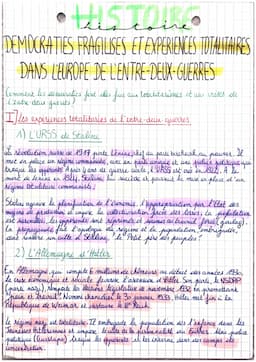 HISTOIRE
histoire
DÉMOCRATIES FRAGILISÉES ET EXPÉRIENCES TOTALITAIRES
DANS L'EUROPE DE L'ENTRE-DEUX-GUERRES
Comment les démocraties font elles face aux totalitarismes et aux crises de
l'entre deux guerres ?
I] Les expériences totalitaires de l'entre-deux-guerres
1) L'URSS de Staline
La révolution russe de 1917 porte Lénine au parti bolchevik au pouvoir. Il
met en place un régime communiste, avec un parti unique et une police politique qui
traque les opposants. Après 4 ans de guerre civile, l'URSS est créée en 1922. À la
mort de Lénine en 1924, Staline lui succède et poursuit la mise en place d'un
régime totalitaire communiste.
Staline impose la planification de l'économie, l'appropriation par l'État des
moyens de production et impose la collectivisation forcée des terres. La population
est surveillée, les opposants sont réprimés et envoyés au travail forcé (goulag).
La propagande fait l'apologie du régime et la population embrigadée,
doit rendre un culte à Staline, le "Petit père des peuples".
2) L'Allemagne d'Hitler
En Allemagne, qui compte 6 millions de chômeurs au début des années 1930,
la crise économique et sociale favorise l'ascension d'Hitler. Son parti, le NSDAP
(parti nazi), remporte les élections législatives de novembre 1932 en promettant
"pain et travail". Nommé chancelier le 30 janvier 1933, Hitler met fin à la
République de Weimar et instaure le III Reich.
Le régime nazi est totalitaire. Il embrigade la population dès l'enfance dans les
Jeunesses hitlériennes et impose le culte du chef
politique (Gestapo) traque les opposants et les envoie dans des camps de
concentration.